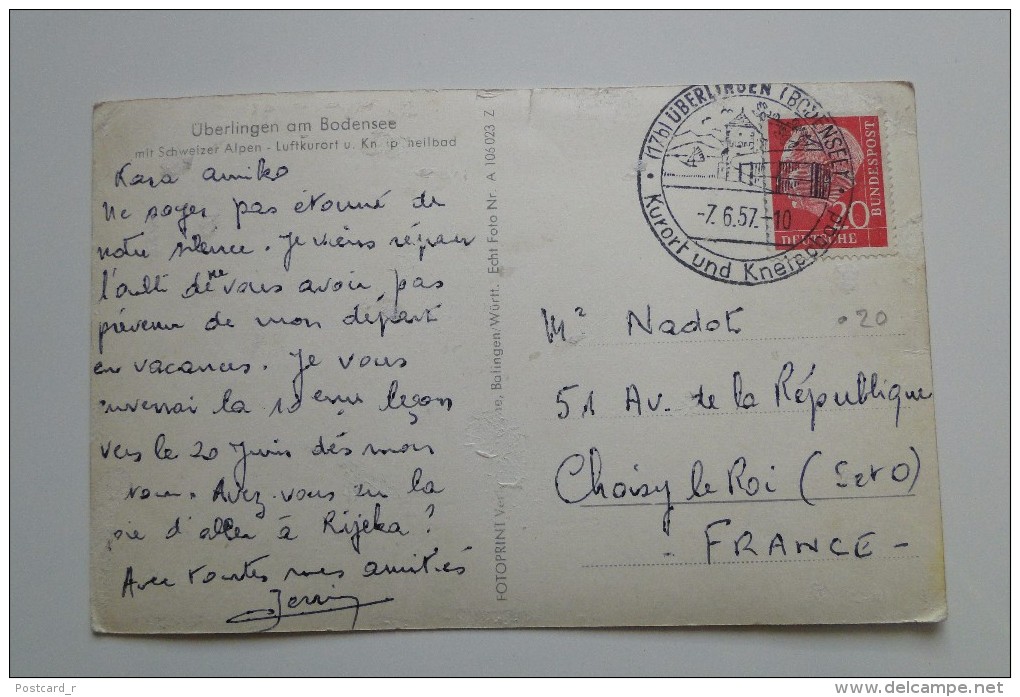 Überlingen am Bodensee
mit Schweizer Alpen - Luftkurort u. Kneippheilbad
Kara amiko
Ne soyez pas étonné de
notre silence. Je viens réparer
l'oubli de ne vous avoir pas
prévenu de mon départ
en vacances. Je vous
enverrai la 10 ème leçon
vers le 20 Juin dès mon
retour. Avez-vous eu la
joie d'aller à Rijeka ?
Avec toutes mes amitiés
FOTOPRINT Balingen/Württ. Echt Foto Nr. A 106 023 Z
(17b) ÜBERLINGEN (BODENSEE)
-7.6.57.-10
Kurort und Kneippbad
20
DEUTSCHE
BUNDESPOST
20
Mr Nadot
51 Av. de la République
Choisy le Roi (S et O)
- FRANCE -
Postcard_r
www.delcampe.net